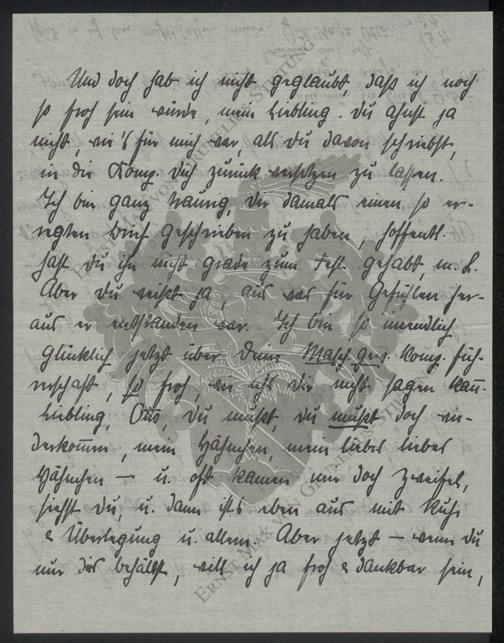 Und doch hab ich nicht geglaubt, daß ich noch
so froh sein würde, mein Liebling. Du ahnst ja
nicht, wie's für mich war, als Du davon schriebst,
in die Komp. Dich zurück versetzen zu lassen.
Ich bin ganz traurig, Dir damals einen so er-
regten Brief geschrieben zu haben, hoffentl.
hast Du ihn nicht grade zum Fest gehabt, m. L.
Aber Du weißt ja aus was für Gefühlen her-
aus er entstanden war. Ich bin so unendlich
glücklich jetzt über Deine Masch. gew. Komp. Füh-
rerschaft, so froh, wie ich's Dir nicht sagen kann.
Liebling, Otto, Du mußt, Du mußt doch wie-
derkommen, mein Hähnchen, mein lieber lieber
Hähnchen — u. oft kamen mir doch Zweifel,
siehst Du, u. dann ist's eben aus mit Ruhe
& Überlegung u. allem. Aber jetzt — wenn Du
nur dies behältst, will ich ja froh & dankbar sein,
ERNST MAX VON GRUNELIUS-STIFTUNG